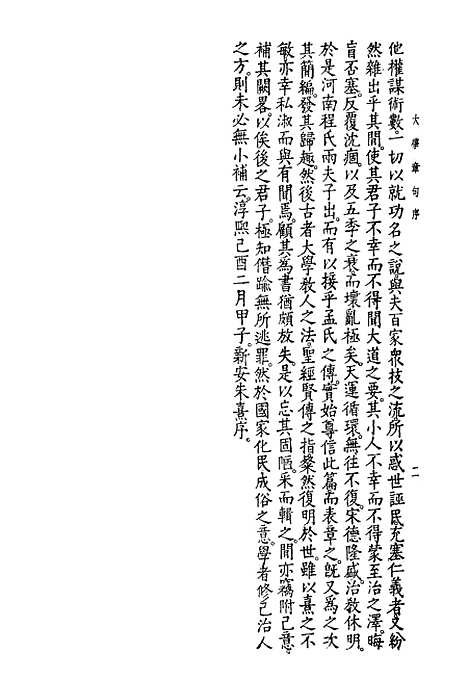 大學章句序
二
他權謀術數。一切以就功名之說。與夫百家衆技之流。所以惑世誣民。充塞仁義者。又紛
然雜出乎其間。使其君子不幸而不得聞大道之要。其小人不幸而不得蒙至治之澤。晦
盲否塞。反覆沈痼。以及五季之衰。而壞亂極矣。天運循環。無往不復。宋德隆盛。治敎休明。
於是河南程氏兩夫子出。而有以接乎孟氏之傳。實始尊信此篇。而表章之。旣又爲之次
其簡編。發其歸趣。然後古者大學敎人之法。聖經賢傳之指。粲然復明於世。雖以熹之不
敏。亦幸私淑而與有聞焉。顧其爲書猶頗放失。是以忘其固陋。采而輯之。間亦竊附己意。
補其闕畧。以俟後之君子。極知僭踰無所逃罪。然於國家化民成俗之意。學者修己治人
之方。則未必無小補云。淳熙己酉二月甲子。新安朱熹序。